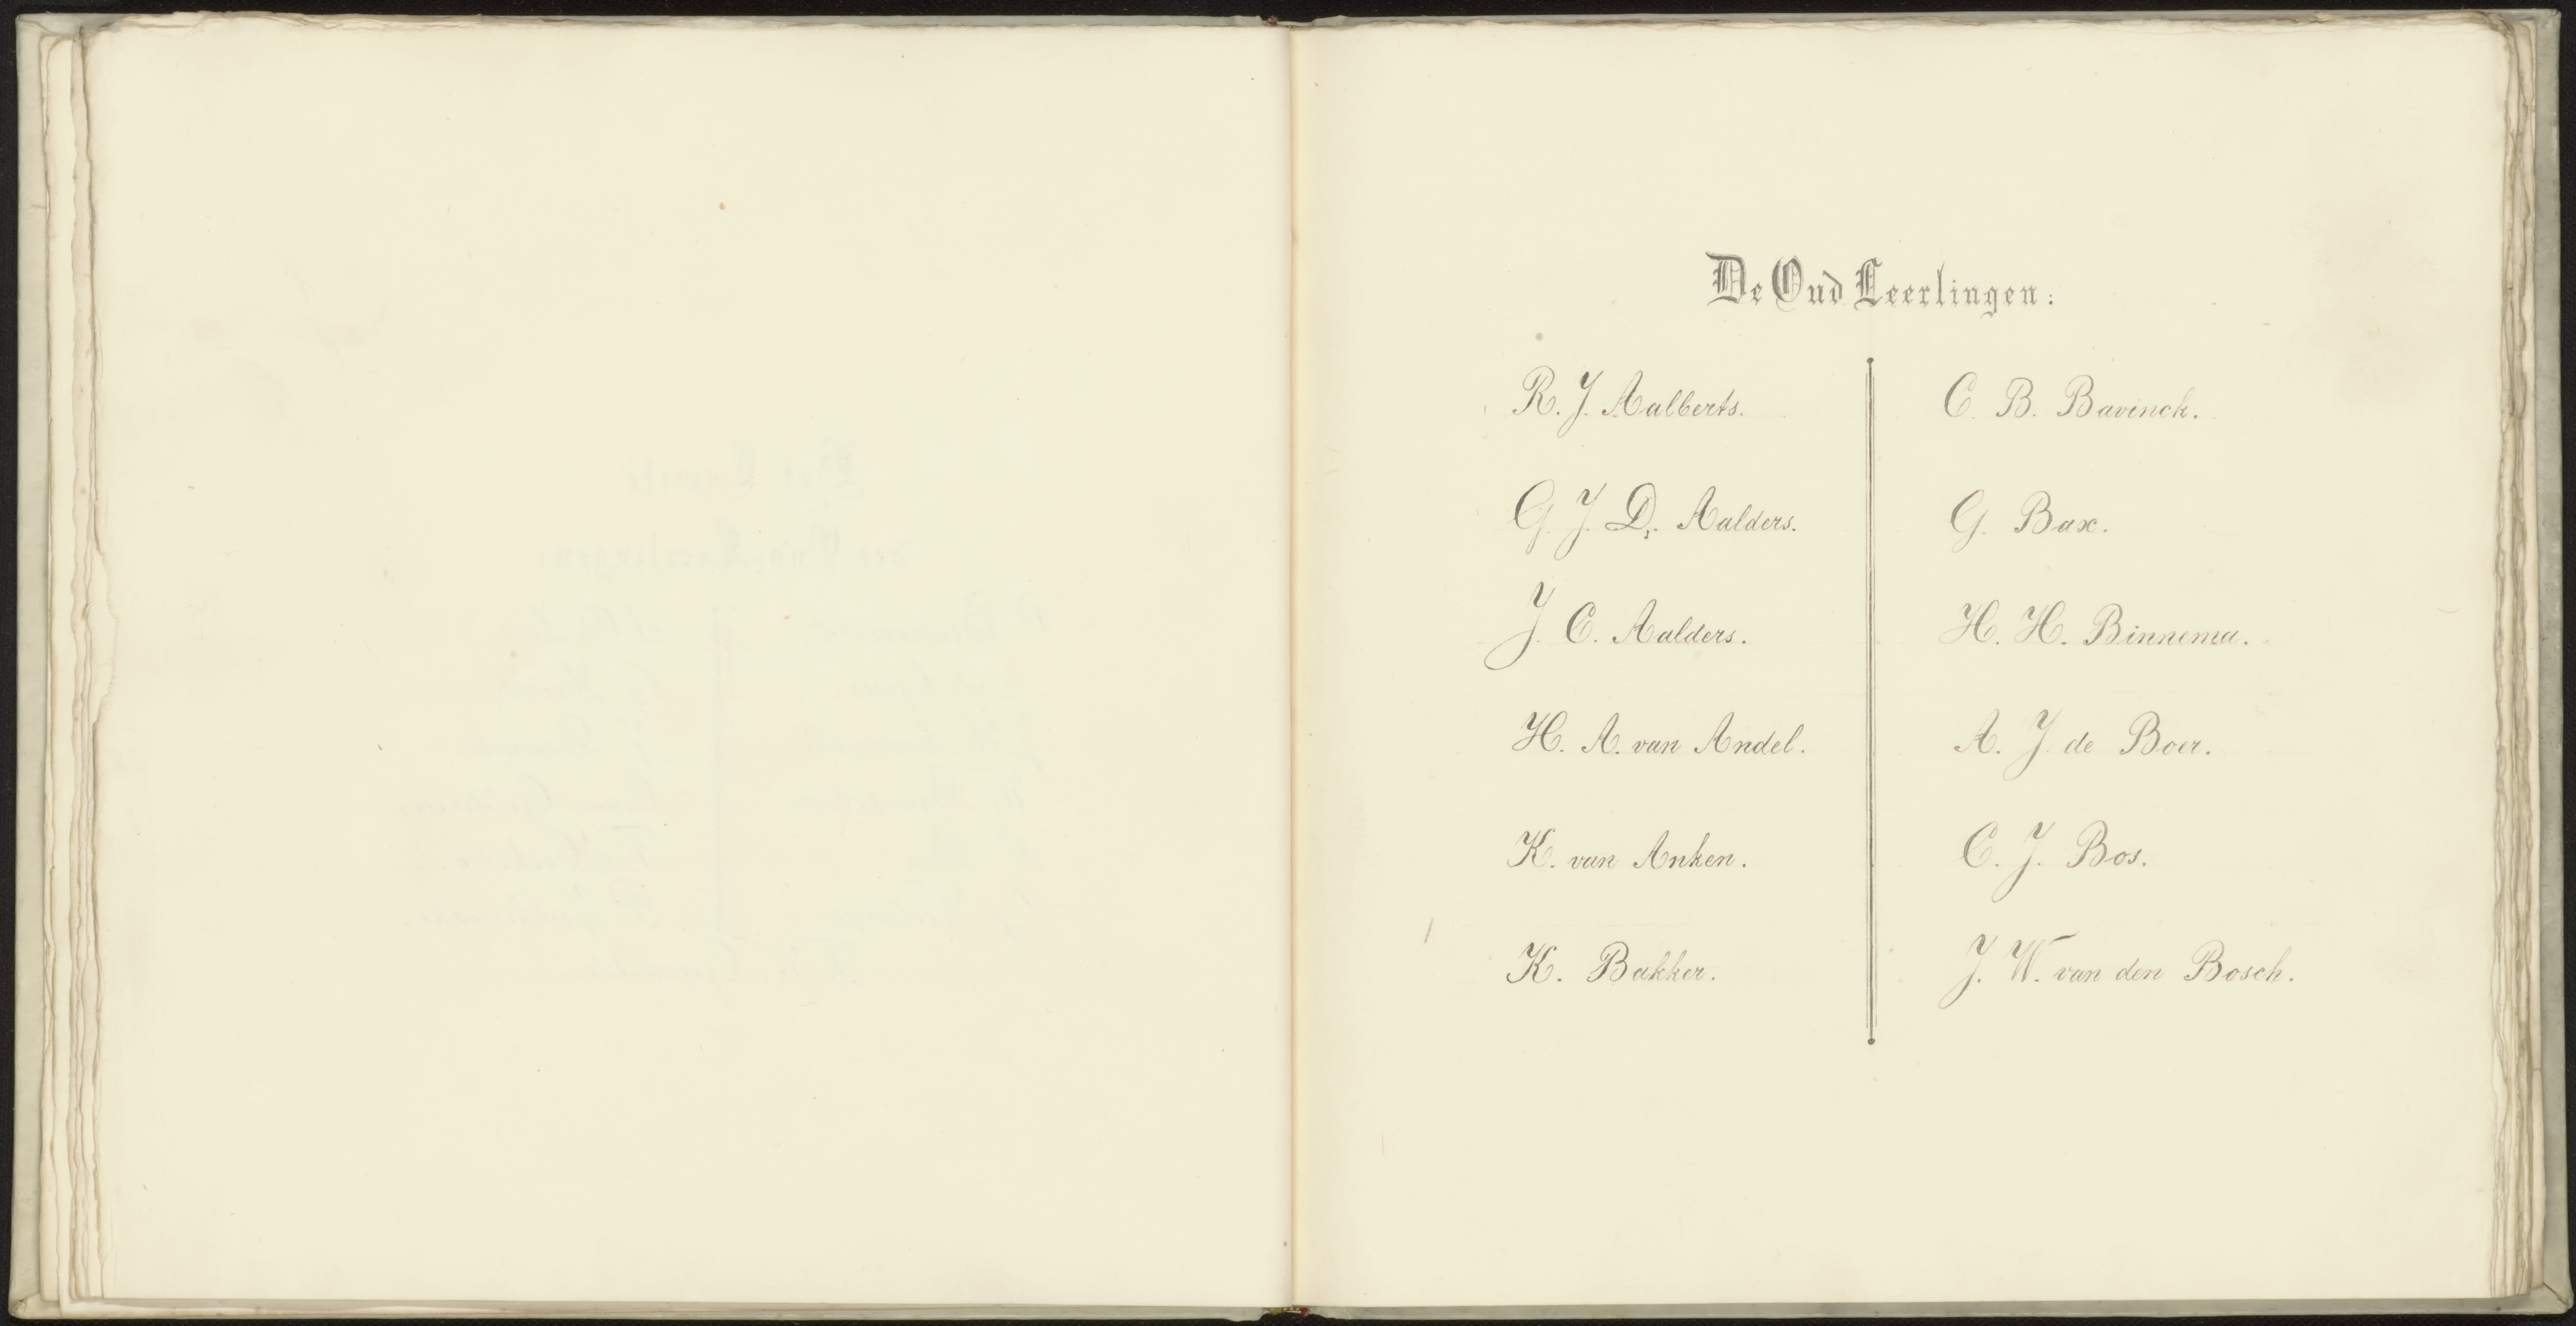 De Oud Leerlingen:
R. J. Aalberts.
G. J. D. Aalders.
J. C. Aalders.
H. A. van Andel.
K. van Anken.
K. Bakker.
C. B. Bavinck.
G. Bax.
H. H. Binnema.
A. J. de Boer.
C. J. Bos.
J. W. van den Bosch.